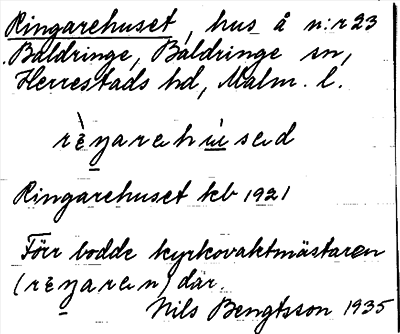 Ringarehuset, hus å n:r 23
Baldringe, Baldringe sn,
Herrestads hd, Malm. l.
rèŋarehúsed
Ringarehuset kb 1921
Förr bodde kyrkovaktmästaren
(reŋaren) där.
Nils Bengtsson 1935